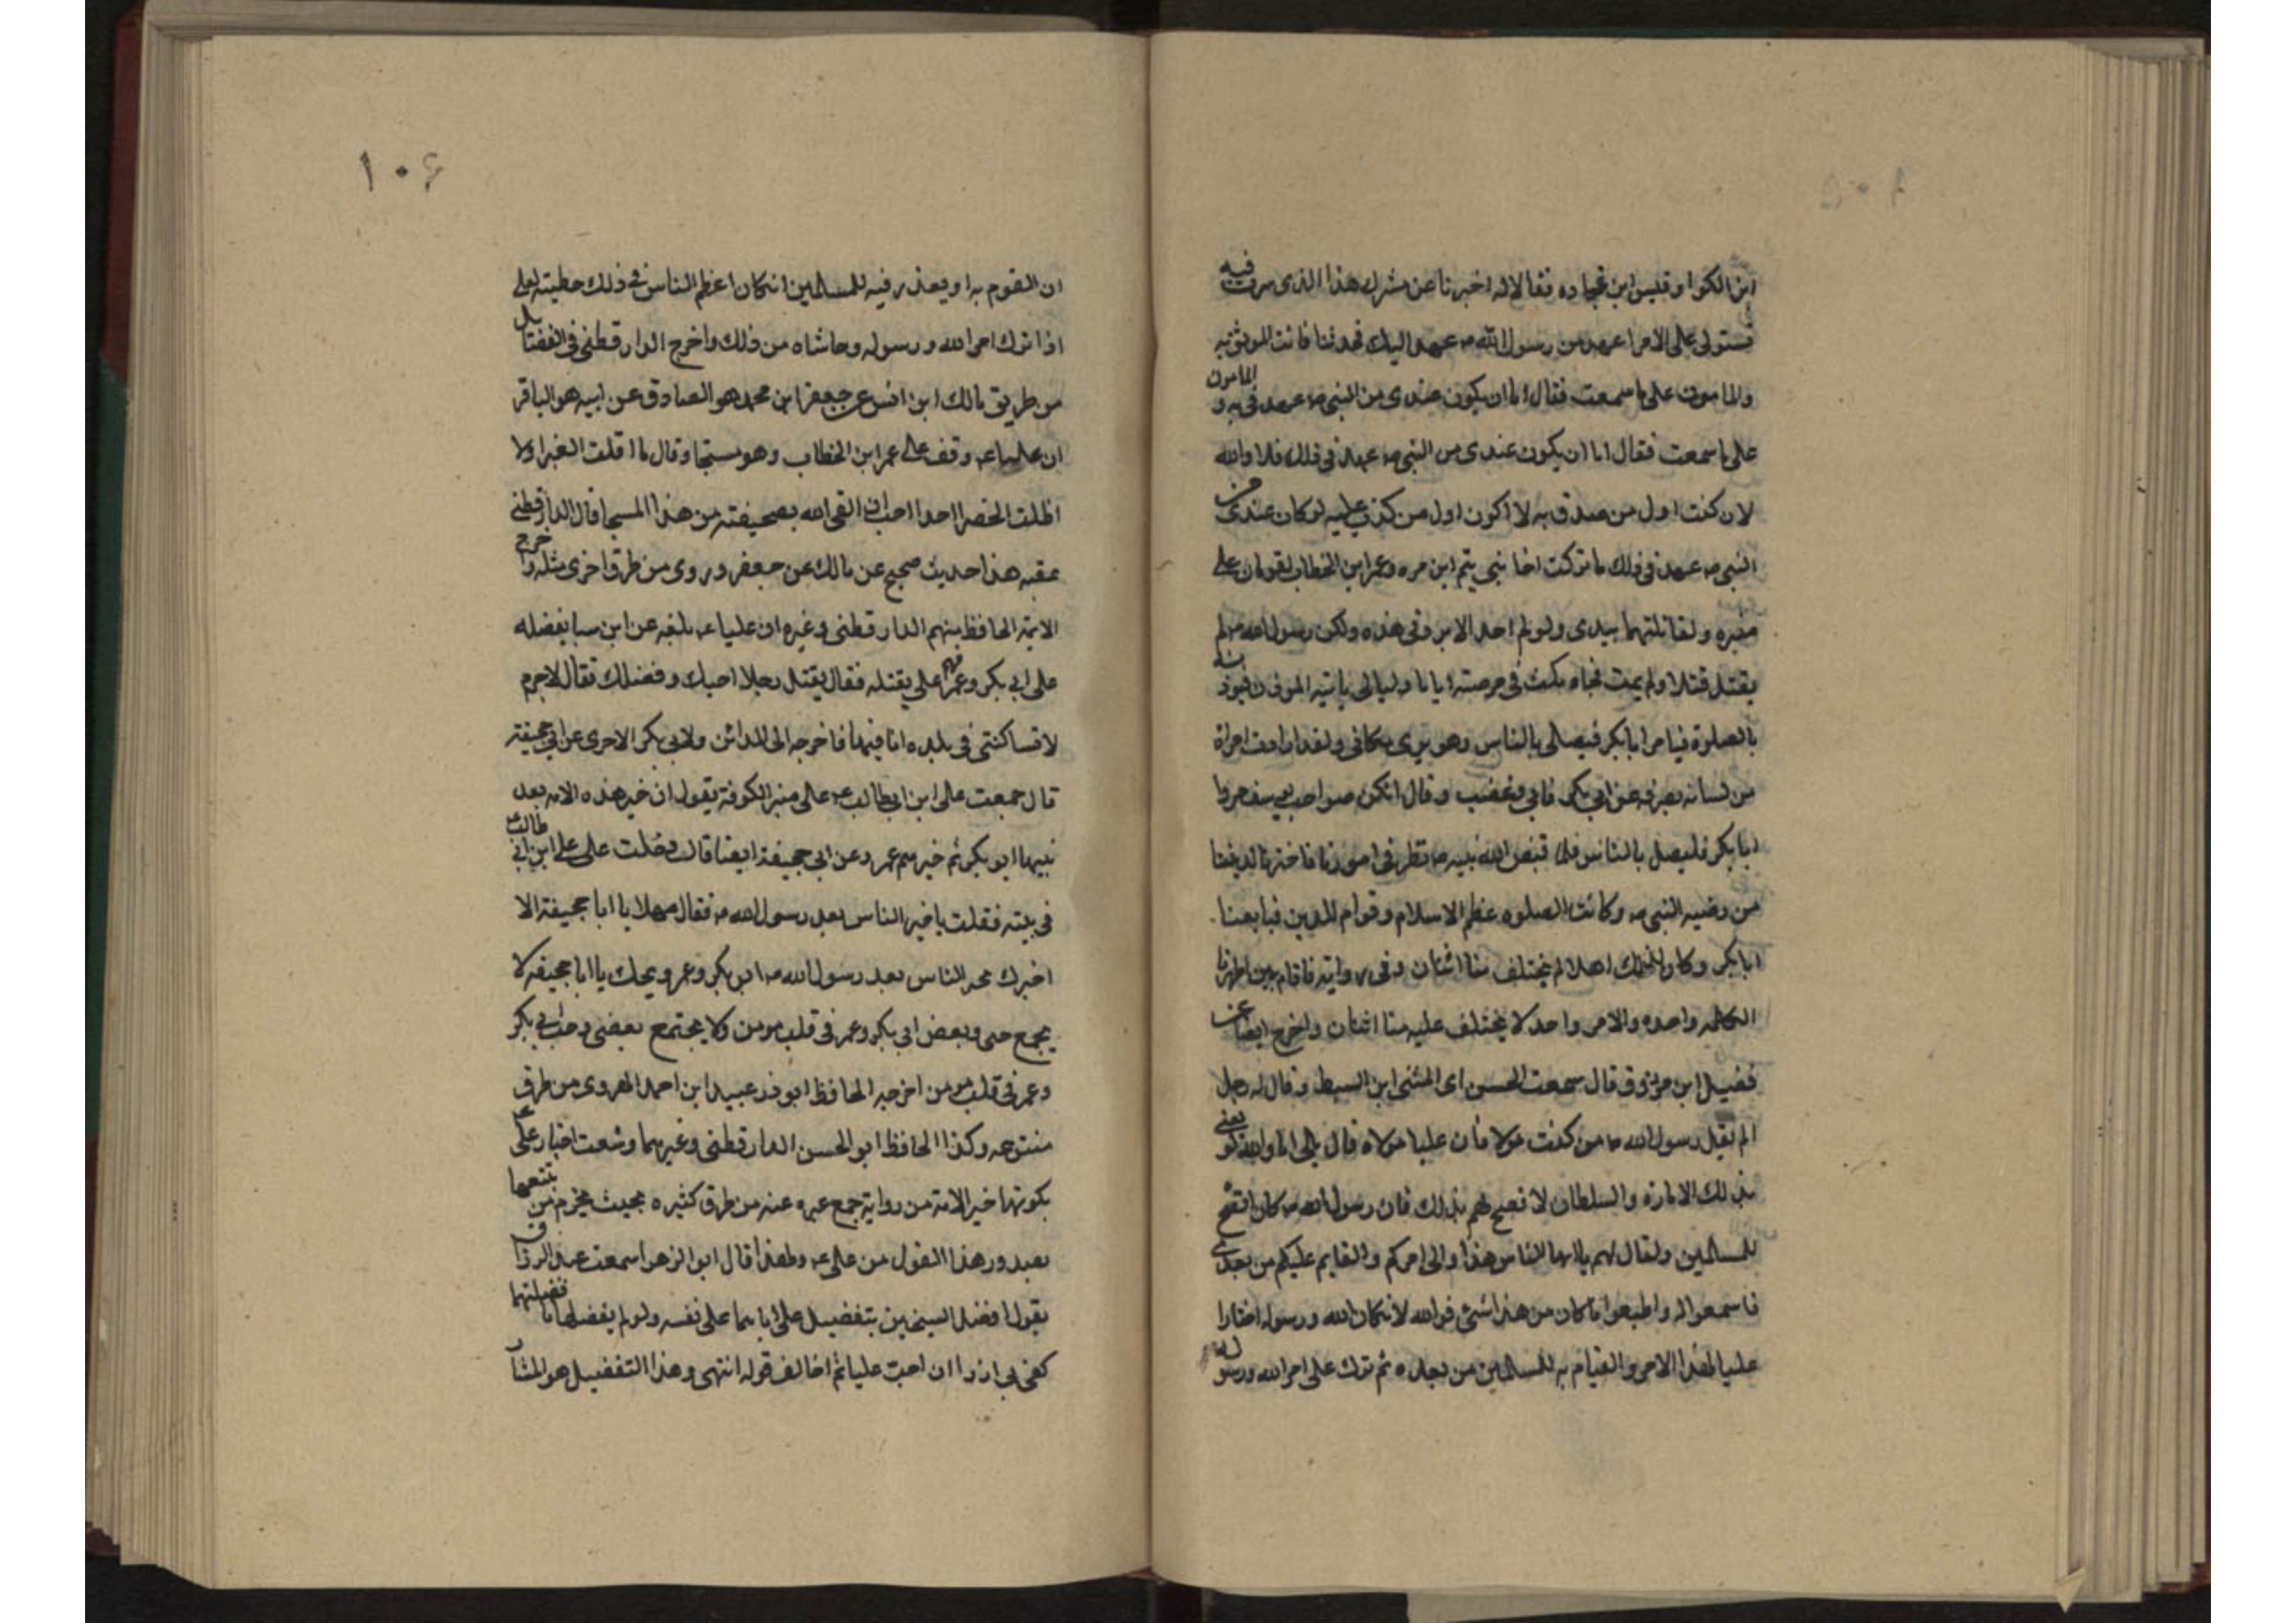 ابن الكوا وقيس ابن عباده فقالا له اخبرنا عن مشرك هذا الذى سرت فيه
تستولى على الامرا عهد من رسول الله ص عهد اليك فحدثنا فانت الموثق به
والمامون على ما سمعت فقال اما ان يكون عندى من النبى ص عهد فى به و المامون
على ما سمعت فقال اما ان يكون عندى من النبى ص عهد فى ذلك فلا والله
لان كنت اول من صدق به لا اكون اول من كذب عليه لو كان عندى من
النبى ص عهد فى ذلك ما تركت اخا بنى يتم ابن مره وعمر ابن الخطاب يقومان على
منبره ولقاتلتهما بيدى ولو لم اجد الا بردتى هذه ولكن رسول الله ص لم
يقتل قتلا ولم يمت فجاه مكث فى مرضه اياما وليالى ياتيه الموذن فيوذنه
بالصلوة فيامر ابا بكر فيصلى بالناس وهو يرى مكانى ولقد ارادت امراة
من نسائه بصرفه عن ابى بكر فابى وغضب وقال انكن صواحب يوسف مروا
ابا بكر فليصل بالناس فلما قبض الله نبيه ص نظرنا فى امورنا فاخترنا لدنيانا
من رضيه النبى ص وكانت الصلوه عظم الاسلام وقوام الدين فبايعنا
ابا بكر وكان لذلك اهلا لم يختلف منا اثنان وفى رواية فاقام بين اظهرنا
الكلمه واحده والامر واحد لا يختلف عليه منا اثنان واخرج ايضا عن
فضيل ابن مرزوق قال سمعت الحسن اى المثنى ابن السبط وقال له رجل
الم يقل رسول الله ص من كنت مولا فان عليا مولاه قال بلى اما والله لو يعنى
بذلك الامارة والسلطان لا فصح لهم بذلك فان رسول الله ص كان افصح
للمسلمين ولقال لهم يا ايها الناس هذا والى امركم والقايم عليكم من بعدى
فاسمعوا له واطيعوا ما كان من هذا شئ فوالله لان كان الله ورسوله اختارا
عليا لهذا الامر والقيام به للمسلمين من بعده ثم ترك على امر الله ورسوله
١٠۶
ان القوم به او يعذر فيه للمسلمين ان كان اعظم الناس فى ذلك خطيئة لعلى
اذا ترك امر الله ورسوله وحاشاه من ذلك واخرج الدار قطنى فى الفضايل
من طريق مالك ابن انس عن جعفر ابن محمد هو الصادق عن ابيه هو الباقر
ان عليا ع وقف على عمر ابن الخطاب وهو مسجا وقال ما اقلت الغبرا ولا
اظلت الخضرا احدا احب ان القى الله بصحيفته من هذا المسجا قال الدار قطنى
عقبه هذا حديث صحيح عن مالك عن جعفر وروى من طرق اخرى مثله واخرج
الايمة الحافظ منهم الدار قطنى وغيره ان عليا ع بلغه عن ابن سبا يفضله
على ابى بكر وعمر فهم على بقتله فقال يقتل رجلا احبك وفضلك فقال لا جرم
لا تساكنني فى بلده انا فيها فاخرجه الى المدائن ولابى بكر الاجرى عن ابى جحيفة
قال سمعت على ابن ابى طالب ع على منبر الكوفة يقول ان خير هذه الامه بعد
نبيها ابو بكر ثم خيرهم عمر وعن ابى جحيفة ايضا قال دخلت على على ابن ابى طالب ع
فى بيته فقلت يا خير الناس بعد رسول الله ص فقال مهلا يا ابا جحيفة الا
اخبرك بخير الناس بعد رسول الله ص ابو بكر وعمر ويحك يا ابا جحيفه لا
يجمع حبى وبعض ابى بكر وعمر فى قلب مومن ولا يجتمع بعضى وحب ابى بكر
وعمر فى قلب مومن اخرجه الحافظ ابو ذر عبيد ابن احمد الهروى من طرق
متنوعه وكذا الحافظ ابو الحسن الدار قطنى وغيرهما وشعت اخبار على ع
بكونهما خير الامة من رواية جمع غيره عنه من طرق كثيره بحيث يجزم من تتبعها
بصدور هذا القول من على ع ولهذا قال ابو الزهر اسمعت عبد الرزاق
يقول افضل الشيخين بتفضيل على اياهما على نفسه ولو لم يفضلهما ما فضلتهما
كفى بى ازرا ان احب عليا ثم اخالف قوله انتهى وهذا التفضيل هو المشار